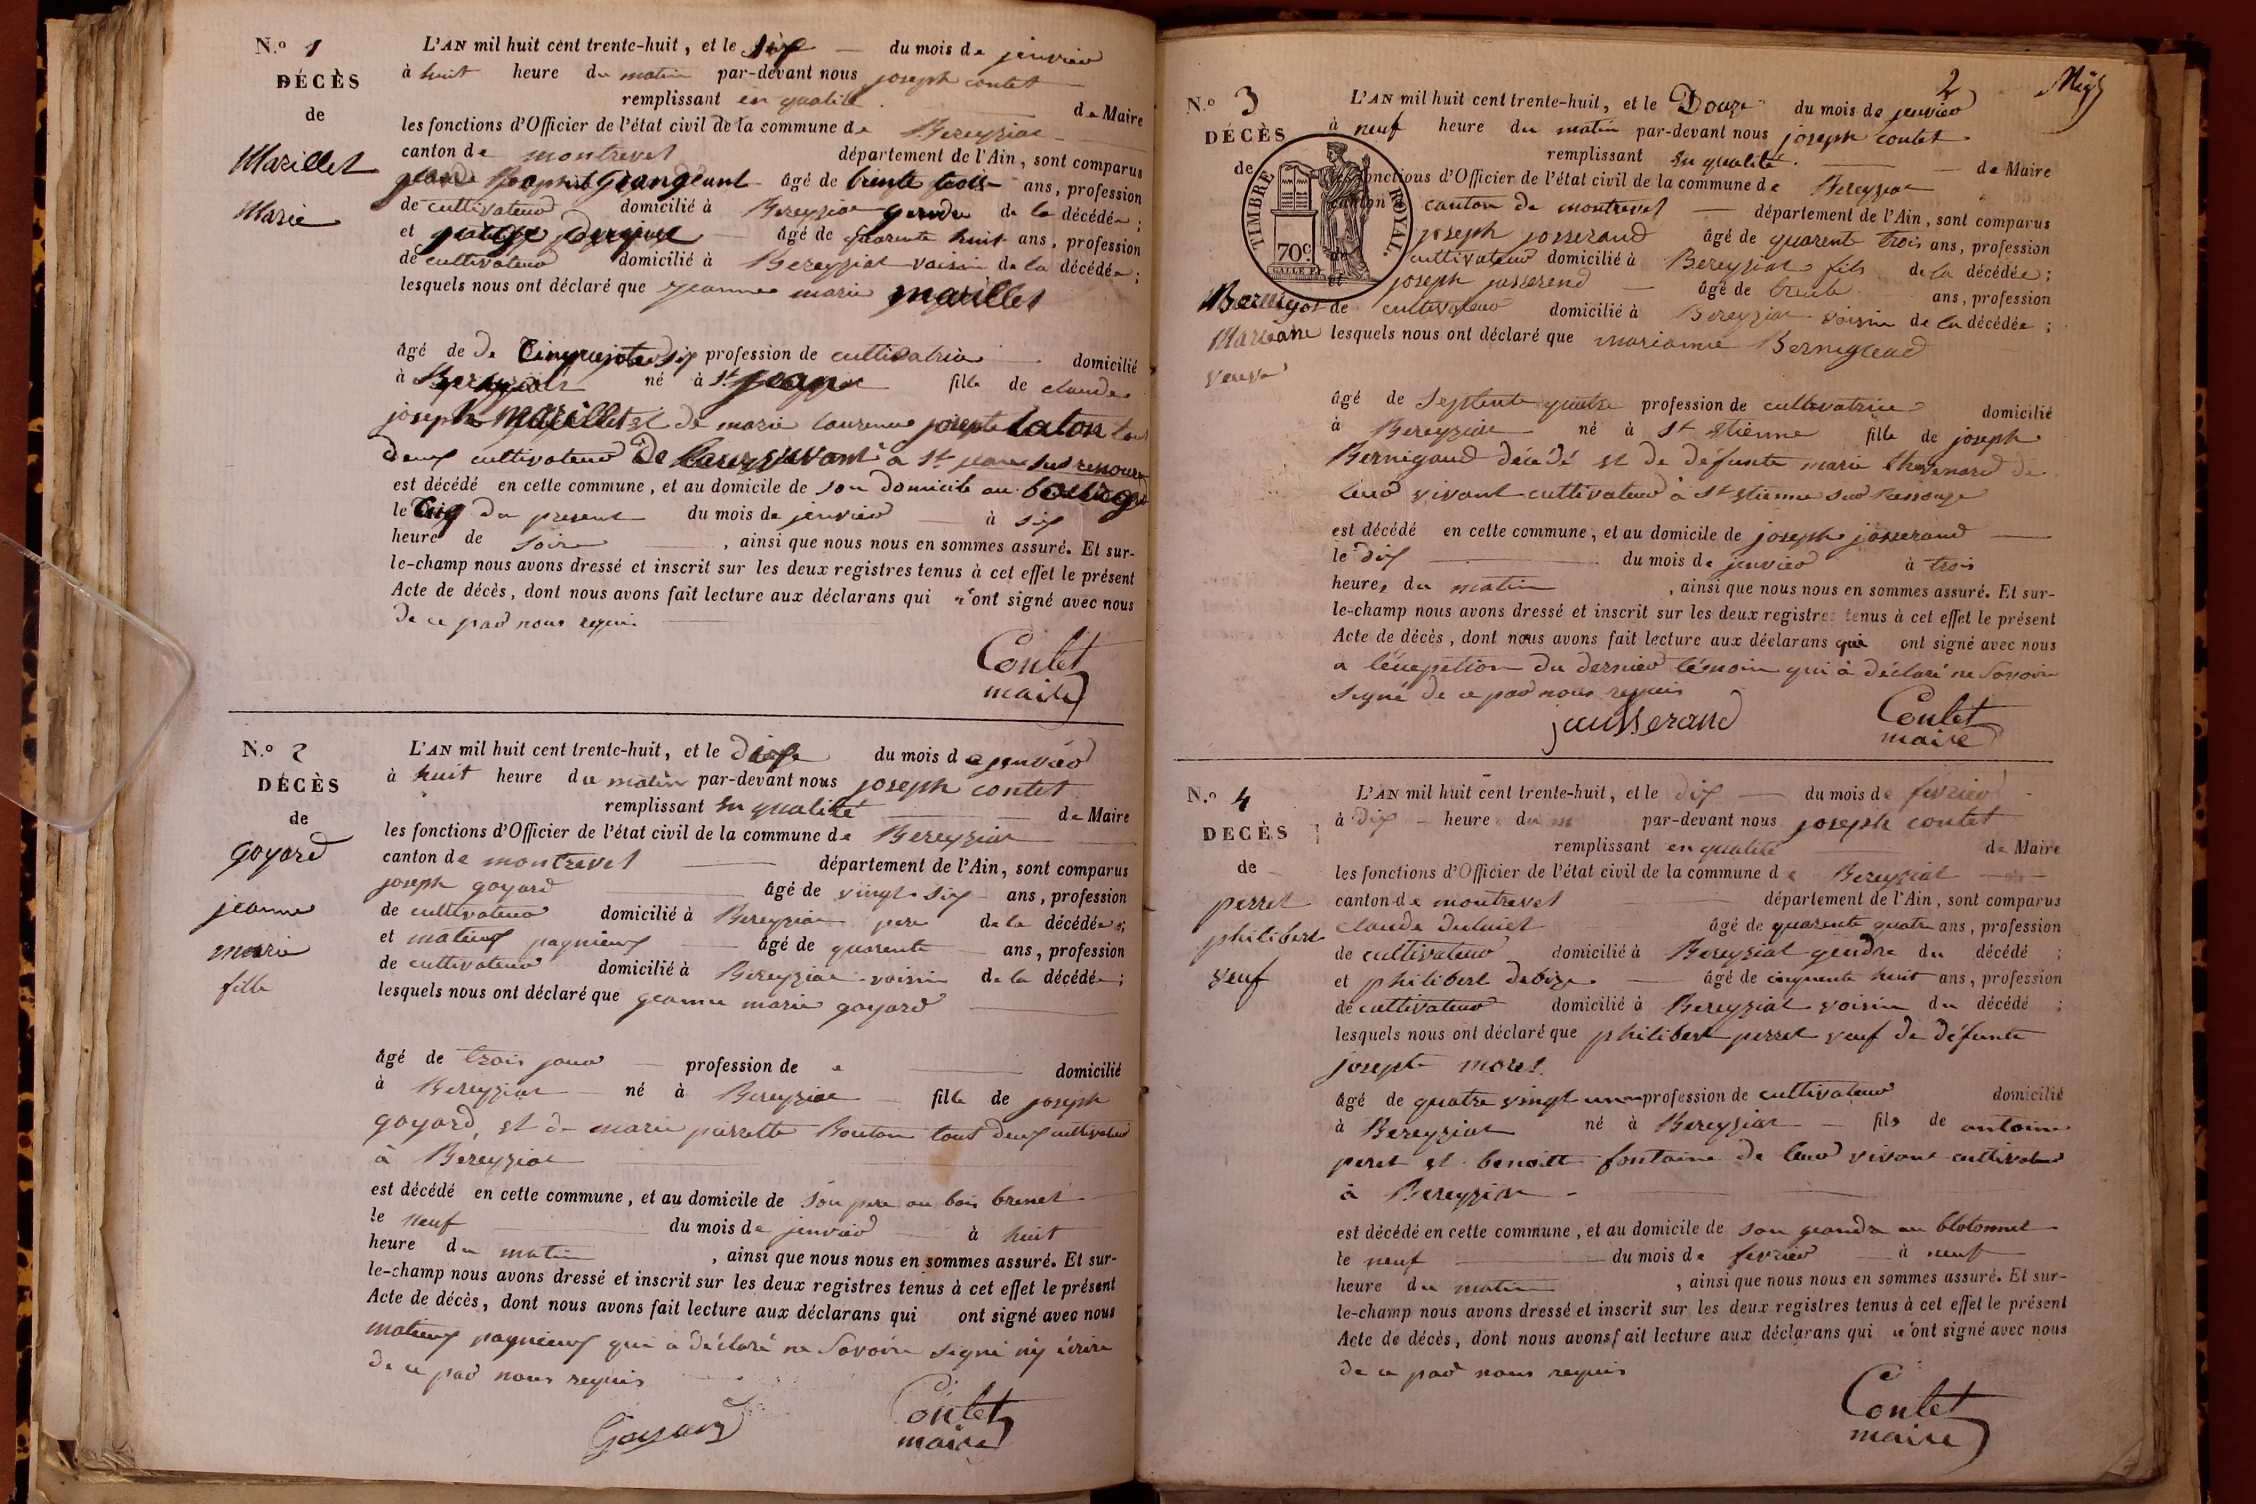 N.o 1
DÉCÈS
de
Marillet
Marie
L'AN mil huit cent trente-huit, et le six du mois de jenvier
à huit heure du matin par-devant nous joseph contet
remplissant en qualité de Maire
les fonctions d'Officier de l'état civil de la commune de Bereyziat
canton de montrevel département de l'Ain, sont comparus
âgé de trente trois ans, profession
de cultivateur domicilié à Bereyziat gendre de la décédée;
et âgé de quarente huit ans, profession
de cultivateur domicilié à Bereyziat voisin de la décédée;
lesquels nous ont déclaré que jeanne marie marillet
âgé de de Cinquante six profession de cultivatrice domicilié
à Bereyziat né à St jean fille de claude
joseph marillet et de marie laurence josepte laton tous
deux cultivateur De leur vivant à St jean sur ressouze
est décédé en cette commune, et au domicile de son domicile au
le Cinq du present du mois de jenvier à six
heure de soire, ainsi que nous nous en sommes assuré. Et sur-
le-champ nous avons dressé et inscrit sur les deux registres tenus à cet effet le présent
Acte de décès, dont nous avons fait lecture aux déclarans qui n'ont signé avec nous
de ce par nous requis
Contet
maire
N.o 2
DÉCÈS
de
goyard
jeanne
marie
fille
L'AN mil huit cent trente-huit, et le dix du mois de jenvier
à huit heure du matin par-devant nous joseph contet
remplissant en qualité de Maire
les fonctions d'Officier de l'état civil de la commune de Bereyziat
canton de montrevel département de l'Ain, sont comparus
joseph goyard âgé de vingt six ans, profession
de cultivateur domicilié à Bereyziat pere de la décédée;
et matieux pagnieux âgé de quarente ans, profession
de cultivateur domicilié à Bereyziat voisin de la décédée;
lesquels nous ont déclaré que jeanne marie goyard
âgé de trois jour profession de domicilié
à Bereyziat né à Bereyziat fille de joseph
goyard, et de marie pierrette Bouton tout deux cultivateur
à Bereyziat
est décédé en cette commune, et au domicile de son pere au bois brunet
le neuf du mois de jenvier à huit
heure du matin, ainsi que nous nous en sommes assuré. Et sur-
le-champ nous avons dressé et inscrit sur les deux registres tenus à cet effet le présent
Acte de décès, dont nous avons fait lecture aux déclarans qui ont signé avec nous
matieux pagnieux qui à déclaré ne Savoire signé ny écrire
de ce par nous requis
Goyard
Contet
maire
2
N.o 3
DÉCÈS
de
Marianne
veuve
TIMBRE ROYAL.
70c.
L'AN mil huit cent trente-huit, et le Douze du mois de jenvier
à neuf heure du matin par-devant nous joseph contet
remplissant en qualité de Maire
les fonctions d'Officier de l'état civil de la commune de Bereyziat
canton canton de montrevel département de l'Ain, sont comparus
joseph josserand âgé de quarente trois ans, profession
de cultivateur domicilié à Bereyziat fils de la décédée;
et joseph josserend âgé de trente ans, profession
de cultivateur domicilié à Bereyziat voisin de la décédée;
lesquels nous ont déclaré que marianne Bernigeaud
âgé de septente quatre profession de cultivatrice domicilié
à Bereyziat né à St etienne fille de joseph
Bernigaud décédé et de défunte marie thevenard de
leur vivant cultivateur à St etienne sur Ressouze
est décédé en cette commune, et au domicile de joseph josserand
le dix du mois de jenvier à trois
heures du matin, ainsi que nous nous en sommes assuré. Et sur-
le-champ nous avons dressé et inscrit sur les deux registres tenus à cet effet le présent
Acte de décès, dont nous avons fait lecture aux déclarans qui ont signé avec nous
a l'éxception du dernier témoin qui à déclaré ne Savoir
signé de ce par nous requis
jausserand
Contet
maire
N.o 4
DÉCÈS
de
perret
philibert
veuf
L'AN mil huit cent trente-huit, et le dix du mois de fevrier
à dix heure du m par-devant nous joseph contet
remplissant en qualité de Maire
les fonctions d'Officier de l'état civil de la commune de Bereyziat
canton de montrevel département de l'Ain, sont comparus
claude âgé de quarente quatre ans, profession
de cultivateur domicilié à Bereyziat gendre du décédé;
et philibert debize âgé de cinquente huit ans, profession
de cultivateur domicilié à Bereyziat voisin du décédé;
lesquels nous ont déclaré que philibert perret veuf de défunte
josepte morel
âgé de quatre vingt un profession de cultivateur domicilié
à Bereyziat né à Bereyziat fils de antoine
peret et benoitte fontaine de leur vivant cultivateur
à Bereyziat
est décédé en cette commune, et au domicile de son geandre au blotonnet
le neuf du mois de fevrier à neuf
heure du matin, ainsi que nous nous en sommes assuré. Et sur-
le-champ nous avons dressé et inscrit sur les deux registres tenus à cet effet le présent
Acte de décès, dont nous avons fait lecture aux déclarans qui n'ont signé avec nous
de ce par nous requis
Contet
maire